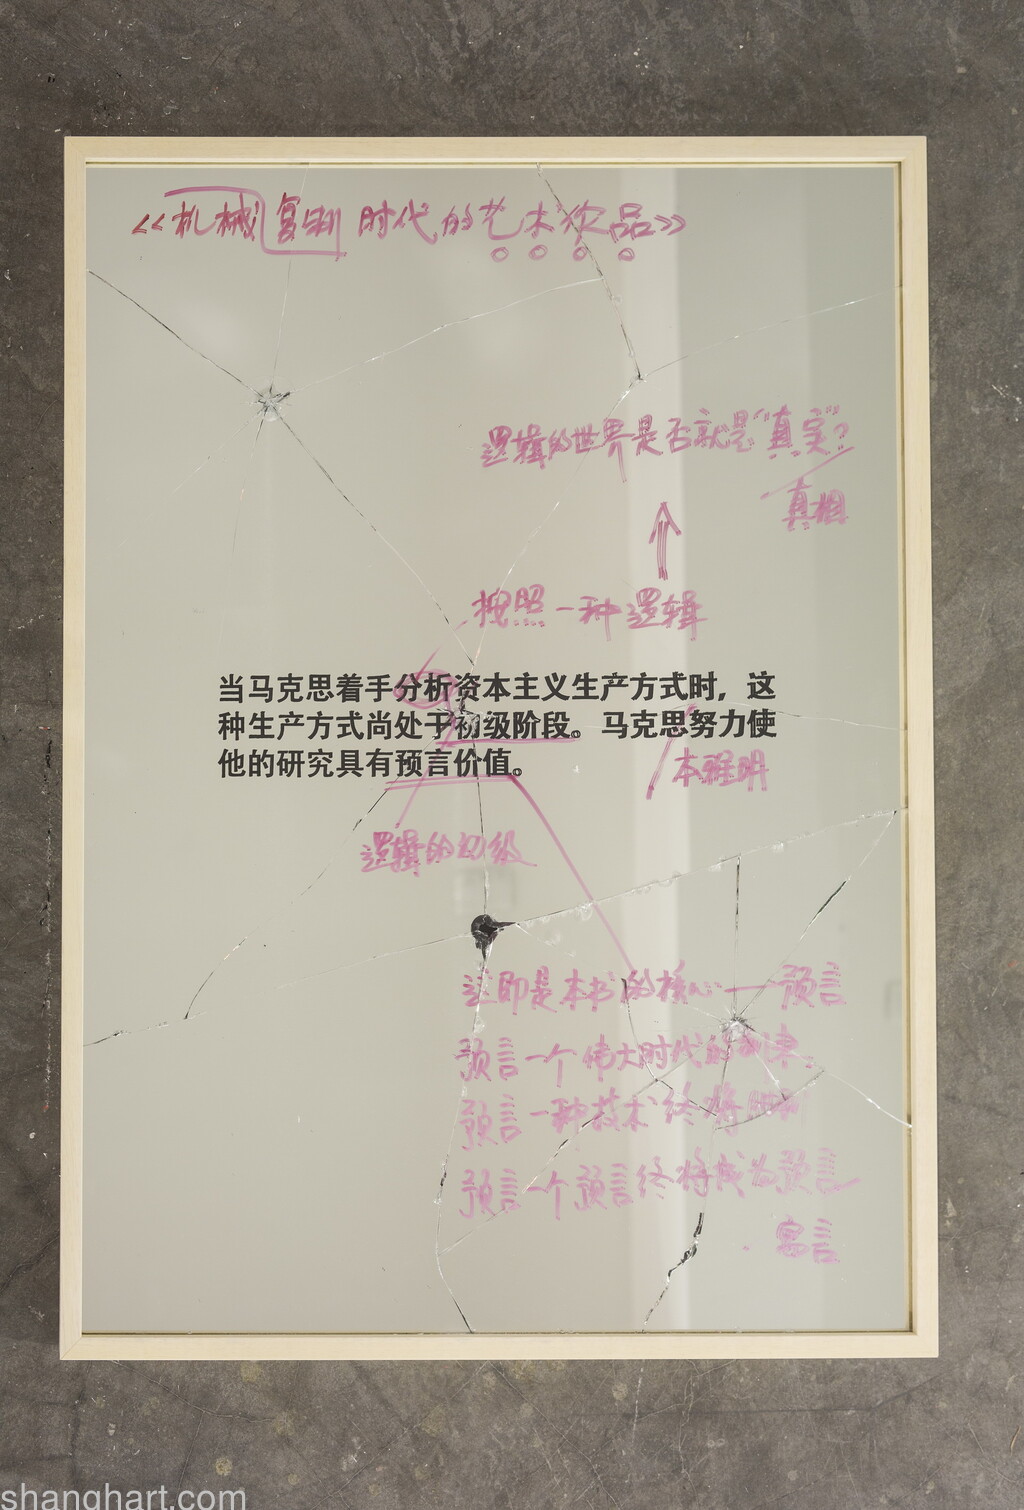 《机械复制时代的艺术作品》
逻辑的世界是否就是“真实”?
真相
按照一种逻辑
当马克思着手分析资本主义生产方式时，这
种生产方式尚处于初级阶段。马克思努力使
他的研究具有预言价值。
本雅明
逻辑的初级
这即是本书的核心——预言
预言一个伟大时代的
预言一种技术终将
预言一个预言终将成为预言
寓言
shanghart.com